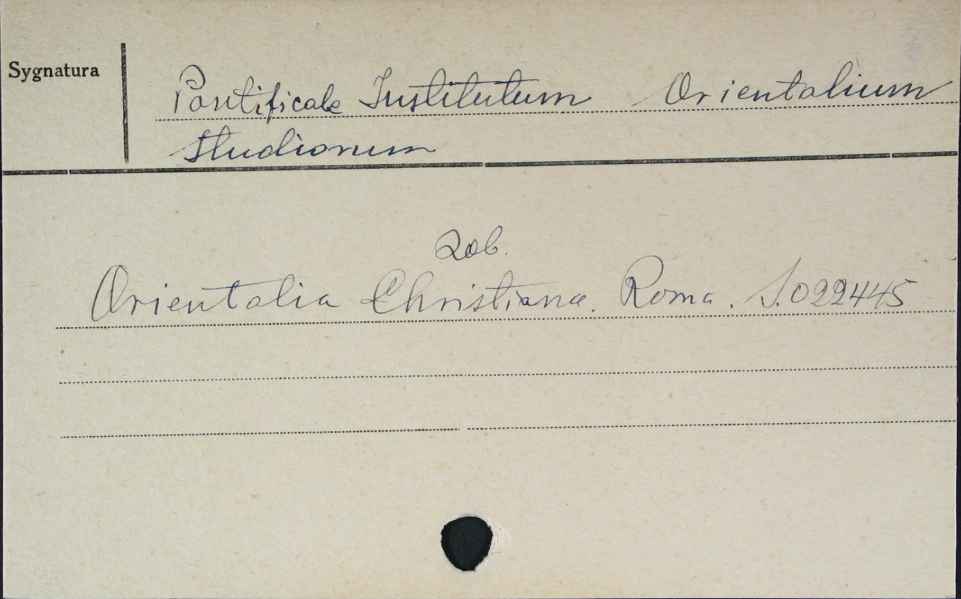 Sygnatura
Pontificale Institutum Orientalium
studiorum
Zob.
Orientalia Christiana. Roma. S.022445